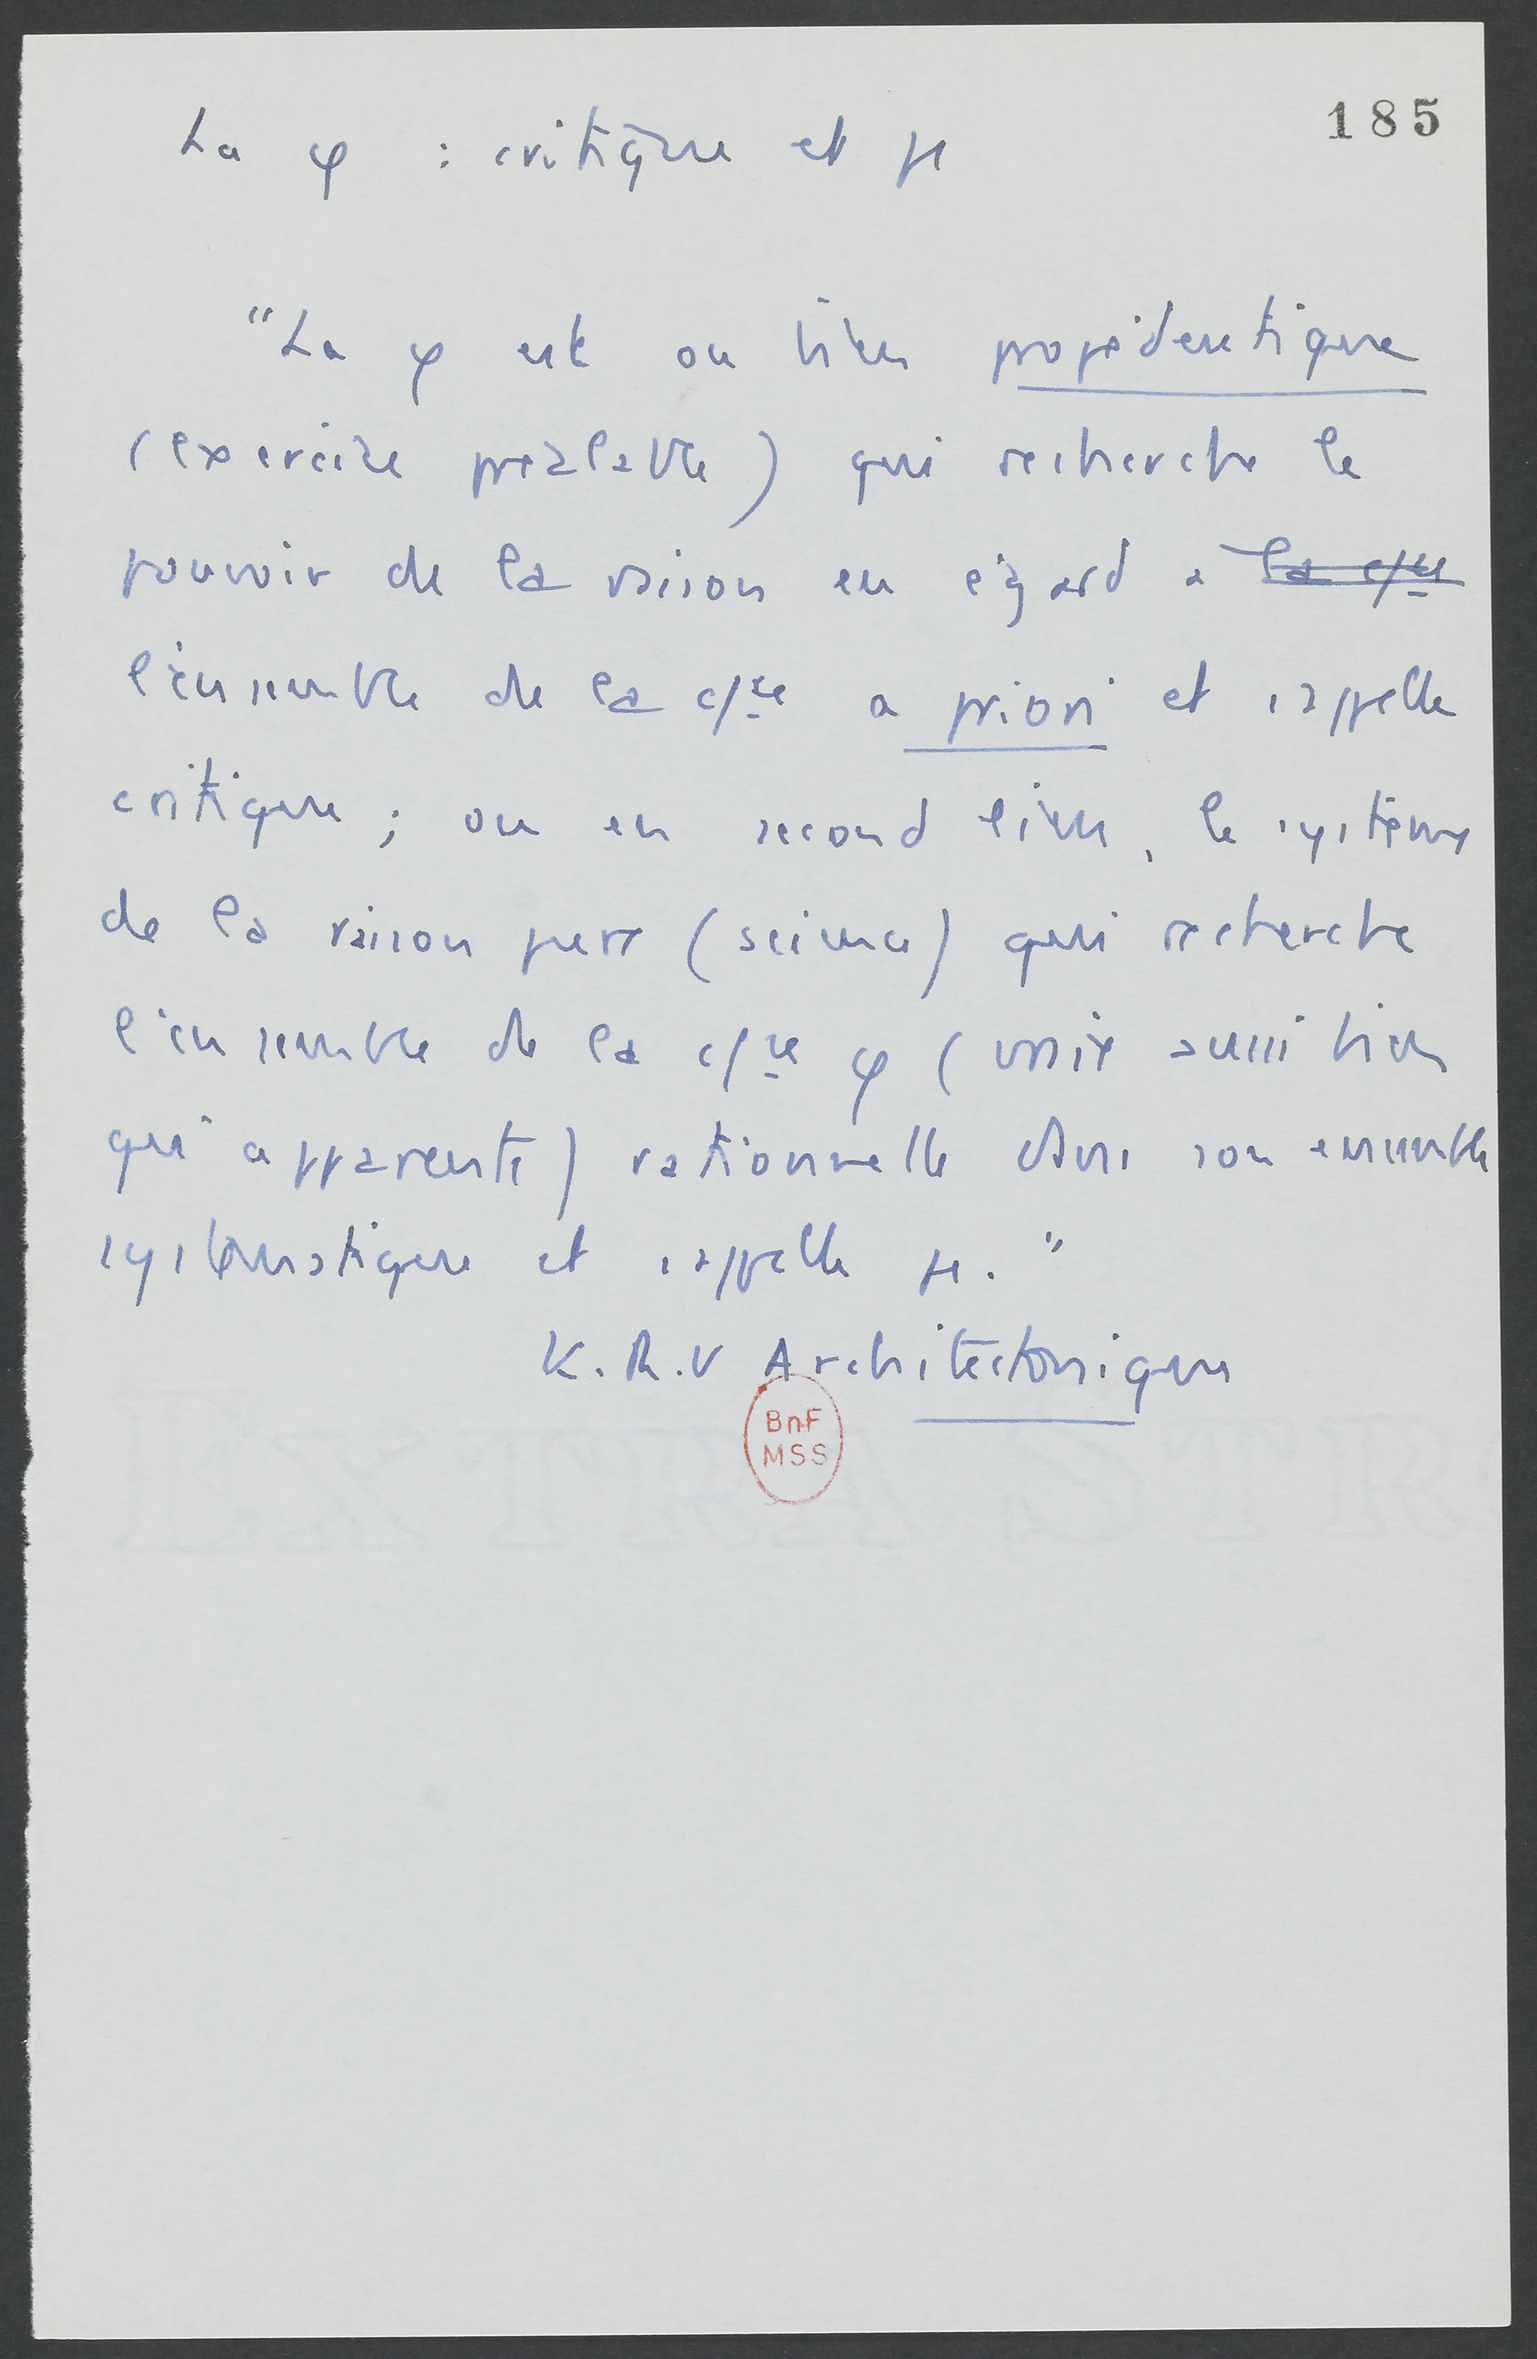 185
La φ : critique et μ
"La φ est ou bien propédeutique
(exercice préalable) qui recherche le
pouvoir de la raison eu égard a la c/ce
l'ensemble de la c/ce a priori et s'appelle
critique ; ou en second lieu, le système
de la raison pure (science) qui recherche
l'ensemble de la c/ce φ (vraie aussi bien
qu'apparente) rationnelle dans son ensemble
systématique et s'appelle μ."
K.R.V Architectonique
BnF
MSS